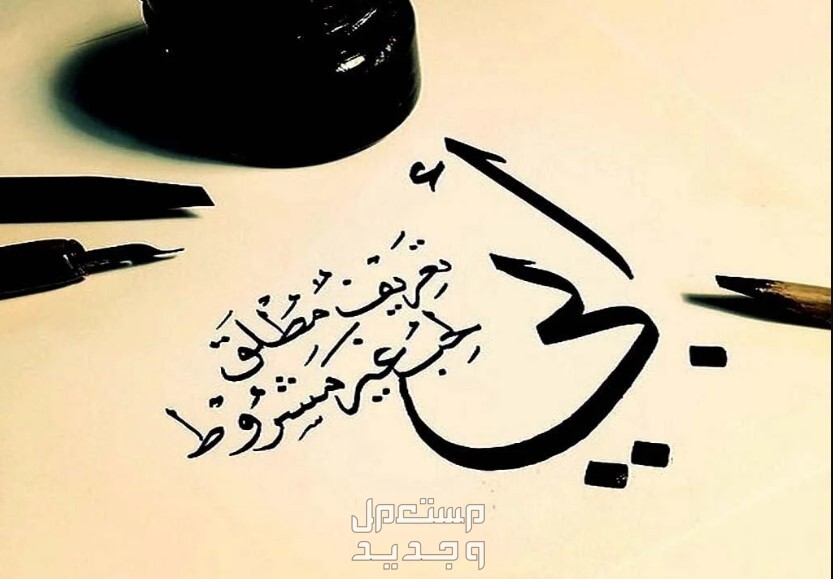 أبي
تعريف مطلق
لحب غير مشروط
مستعمل
وجديد